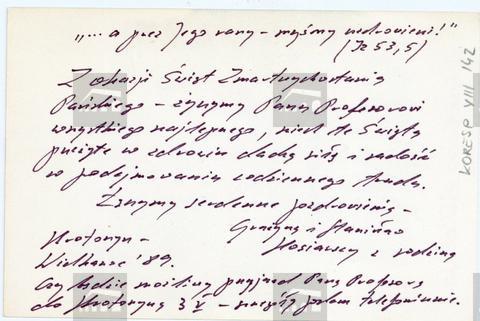 „... a przez Jego rany – myśmy uzdrowieni!"
(Iz 53,5)
Z okazji Świąt Zmartwychwstania
Pańskiego – życzymy Panu Profesorowi
wszystkiego najlepszego, niech te Święta
przeżyte w zdrowiu dadzą siłę i radość
w podejmowaniu codziennego trudu.
Łączymy serdeczne pozdrowienia –
Grażyna i Stanisław
z rodziną
Krotoszyn –
Wielkanoc '89.
Czy będzie możliwy przyjazd Pana Profesora
do Krotoszyna 3 V – telefonicznie.
KORESP VIII 142